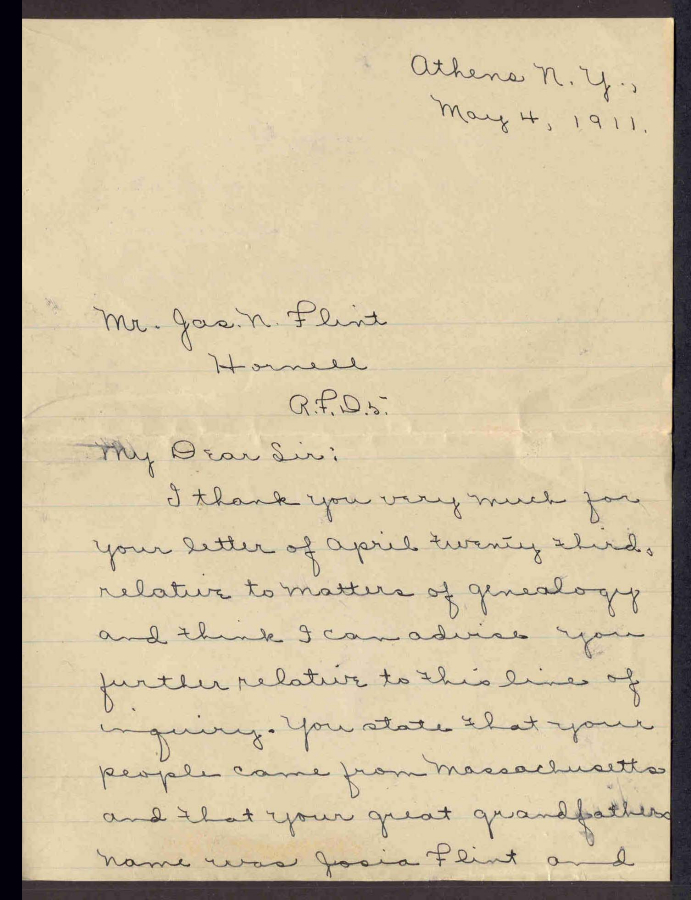 Athens N. Y.,
May 4, 1911.
Mr. Jas. N. Flint
Hornell
R.F.D. 5.
My Dear Sir:
I thank you very much for
your letter of April twenty third,
relative to matters of genealogy
and think I can advise you
further relative to this line of
inquiry. You state that your
people came from Massachusetts
and that your great grandfathers
name was Josia Flint and